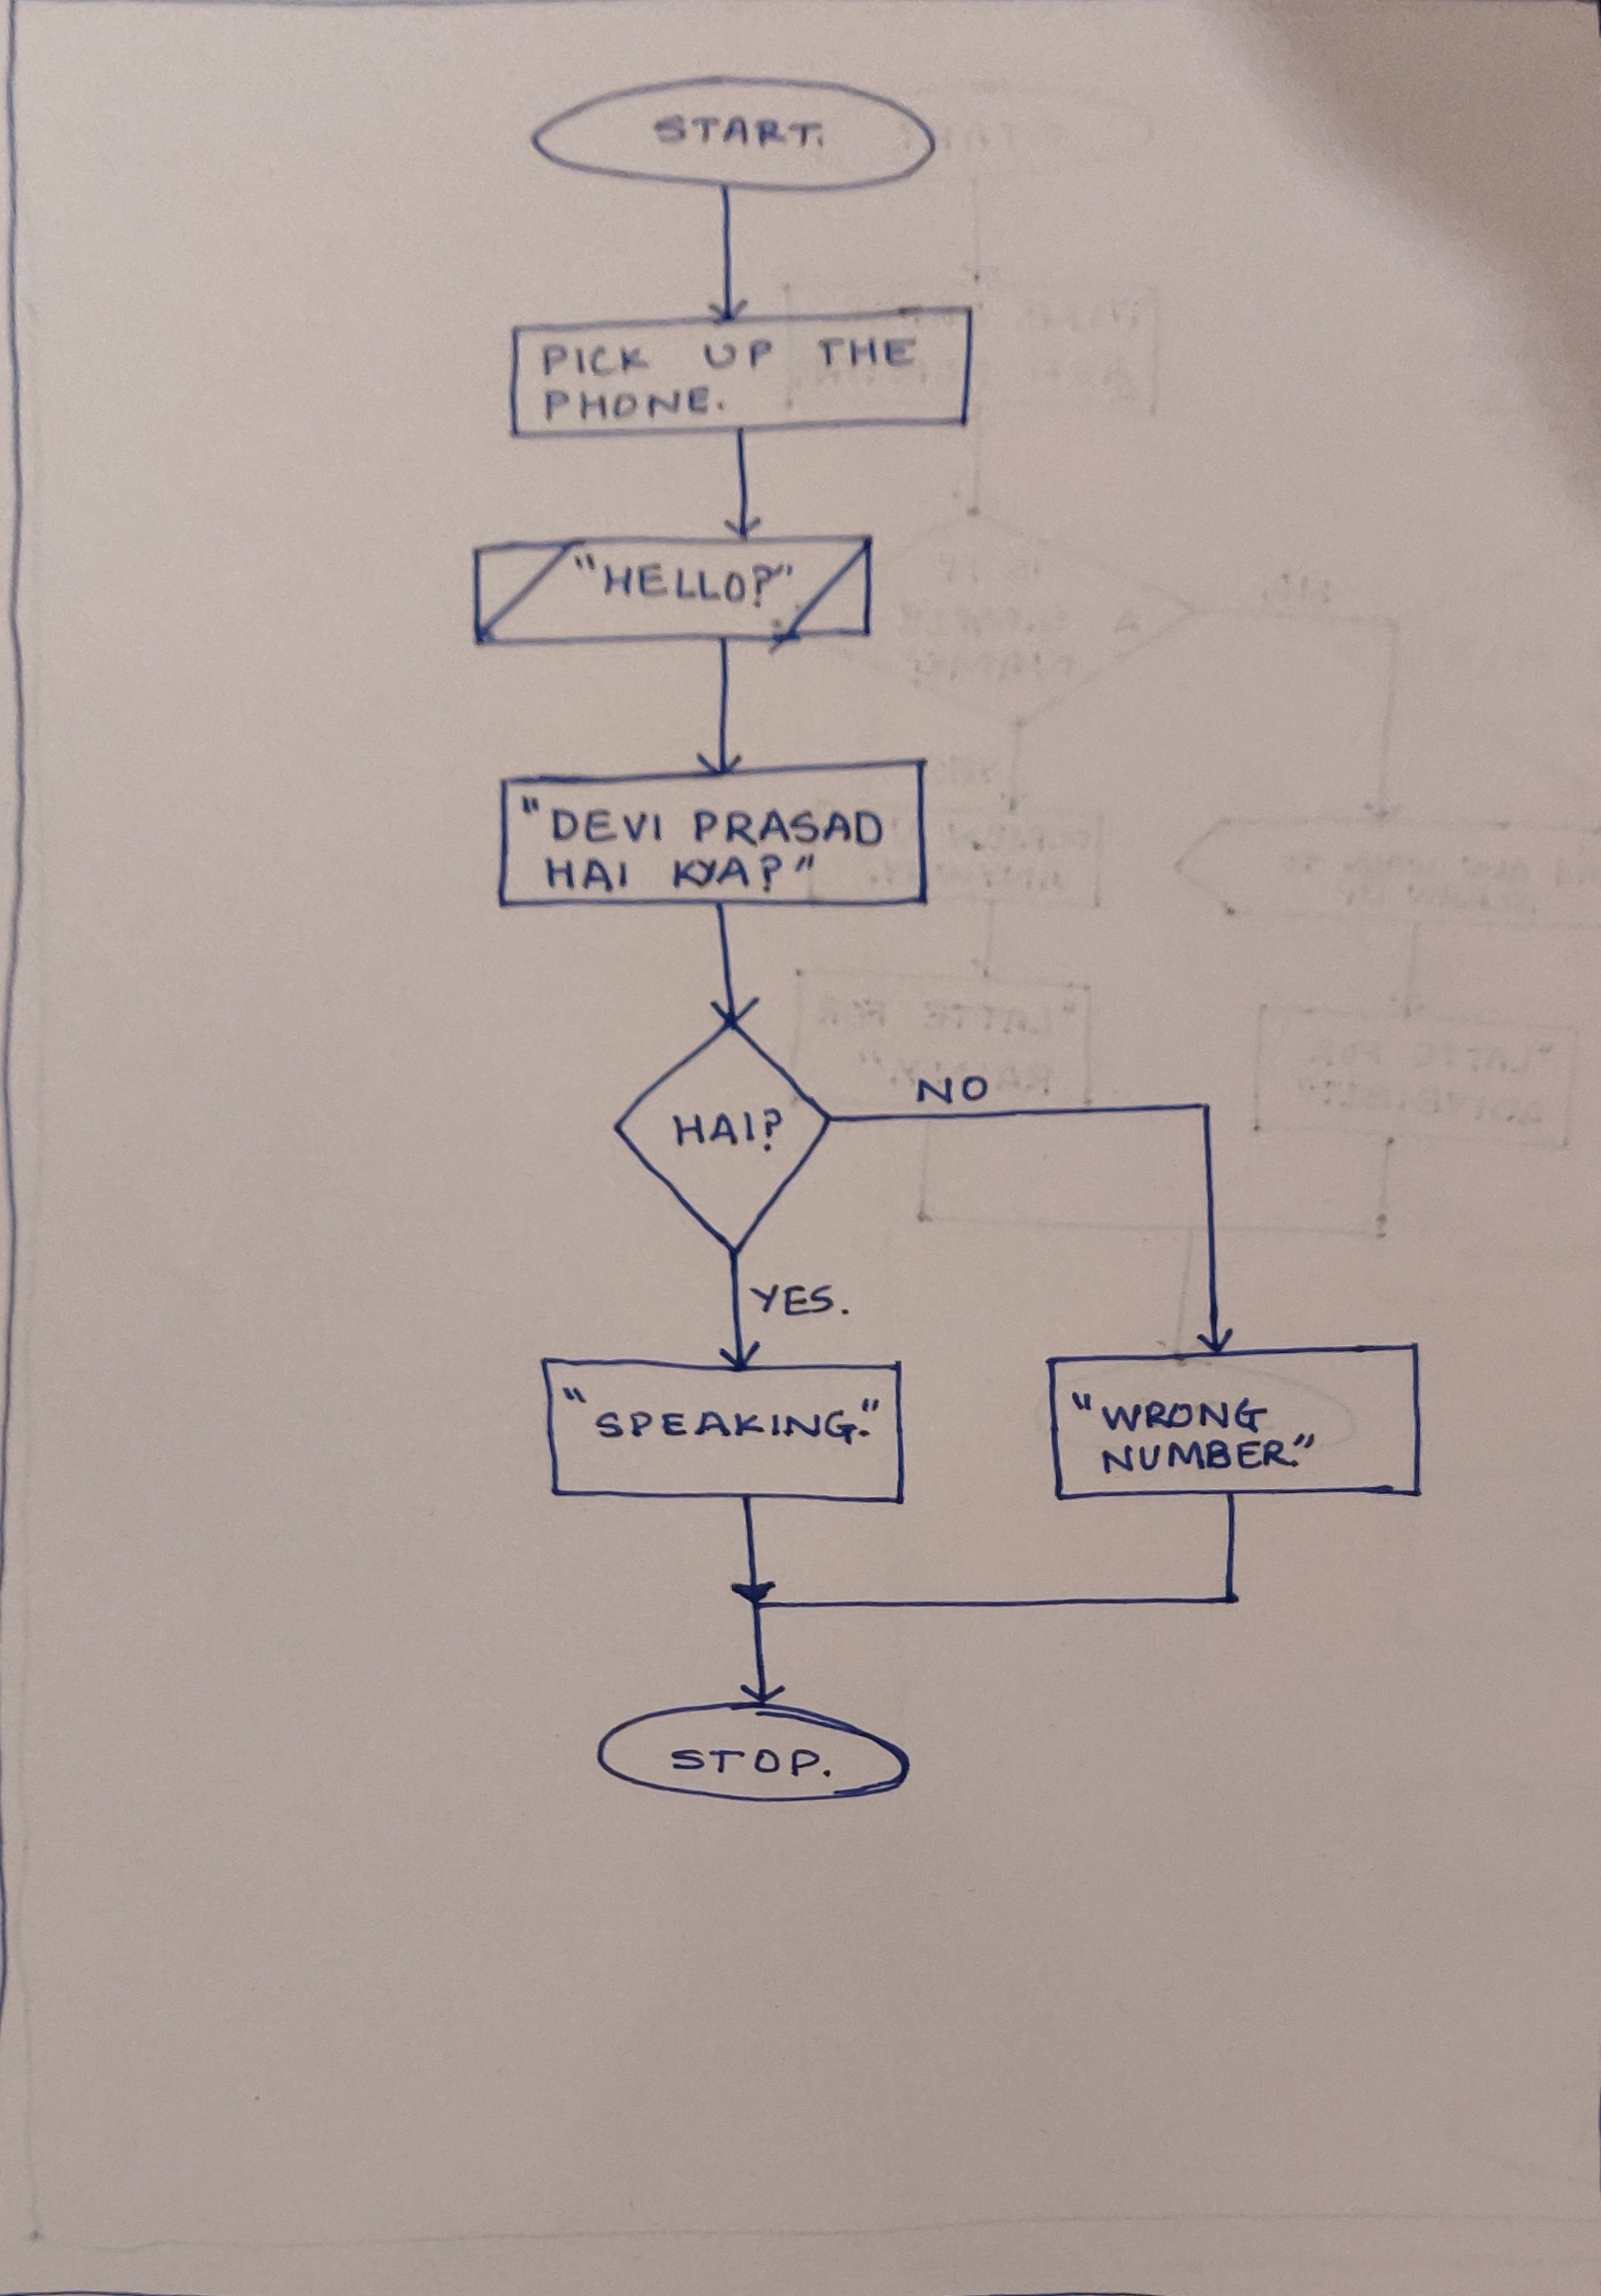 START.
PICK UP THE
PHONE.
"HELLO?"
"DEVI PRASAD
HAI KYA?"
HAI?
NO
YES.
"SPEAKING."
"WRONG
NUMBER."
STOP.
"LATTE FOR
"LATTE FOR